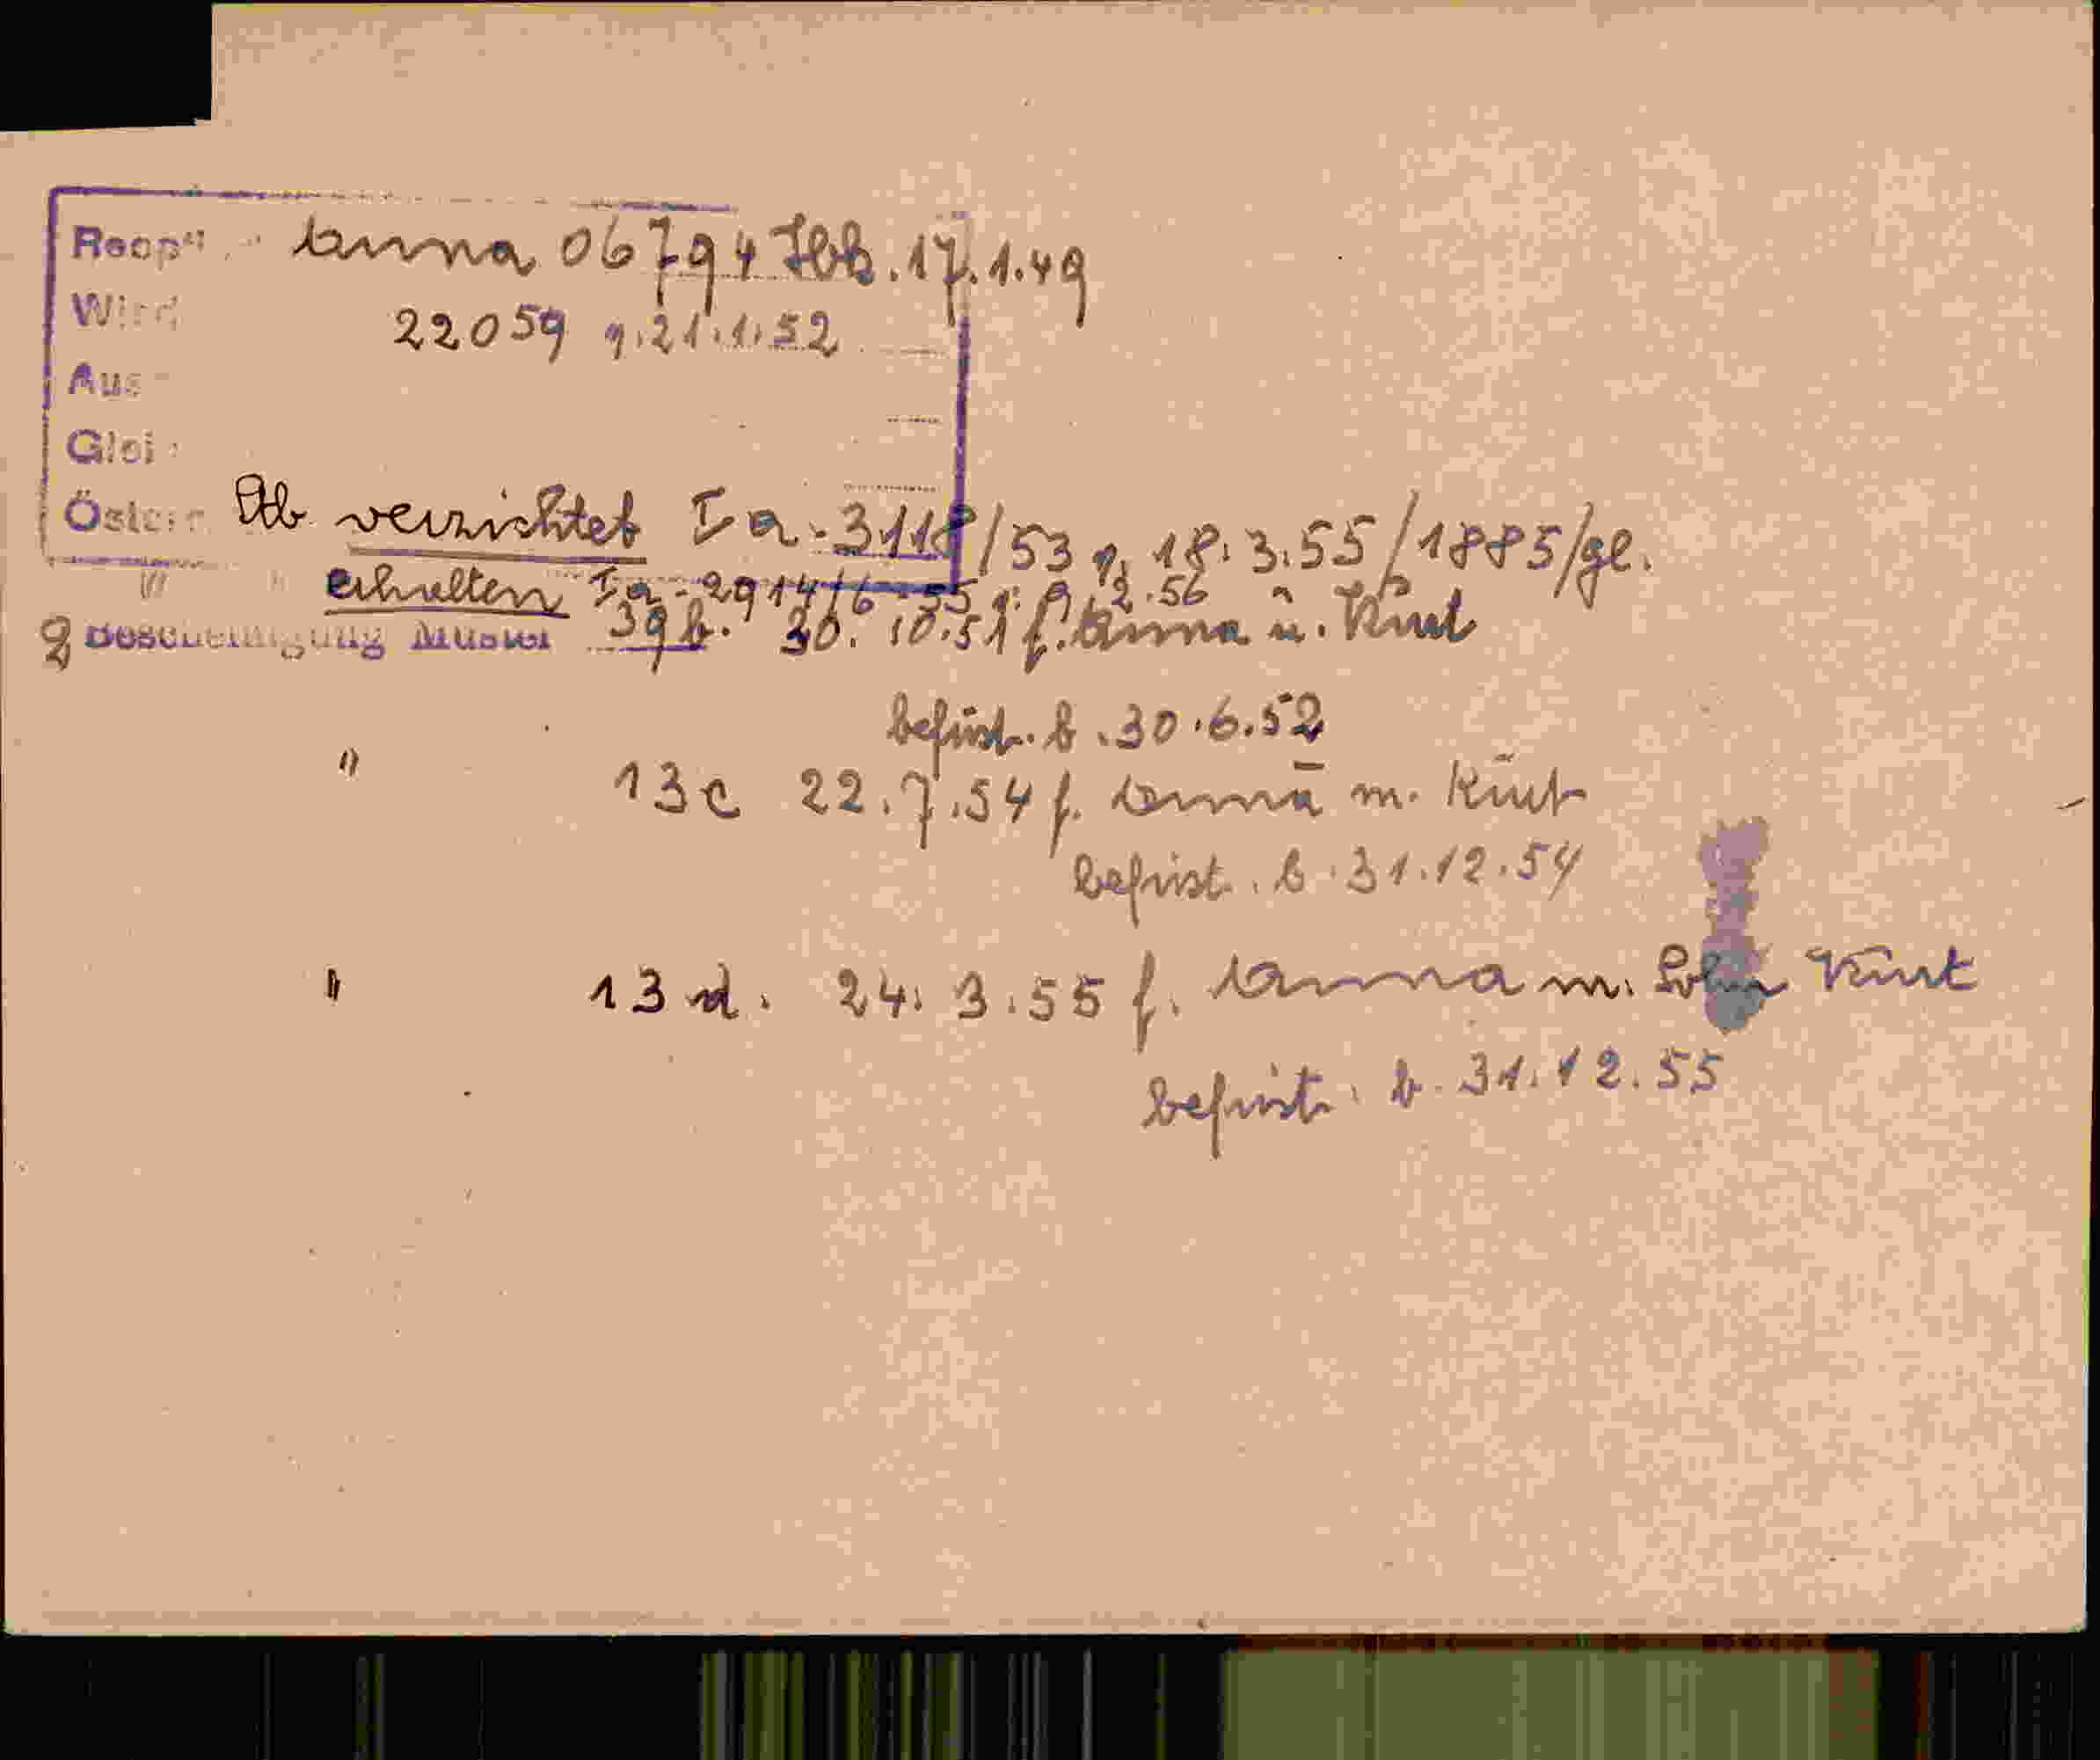 Anna 06794 Ibk. 17.1.49
22059 v. 21.1.52
Ab verzichtet Ia-3118/53 v. 18.3.55/1885/gl.
erhalten Ia-2914/6-55 v. 9.2.56
Bescheinigung Muster 39b. 30.10.51 f. Anna u. Kurt
befrist. b. 30.6.52
" 13c 22.7.54 f. Anna m. Kurt
befrist. b. 31.12.54
" 13d. 24.3.55 f. Anna m. Sohn Kurt
befrist. b. 31.12.55